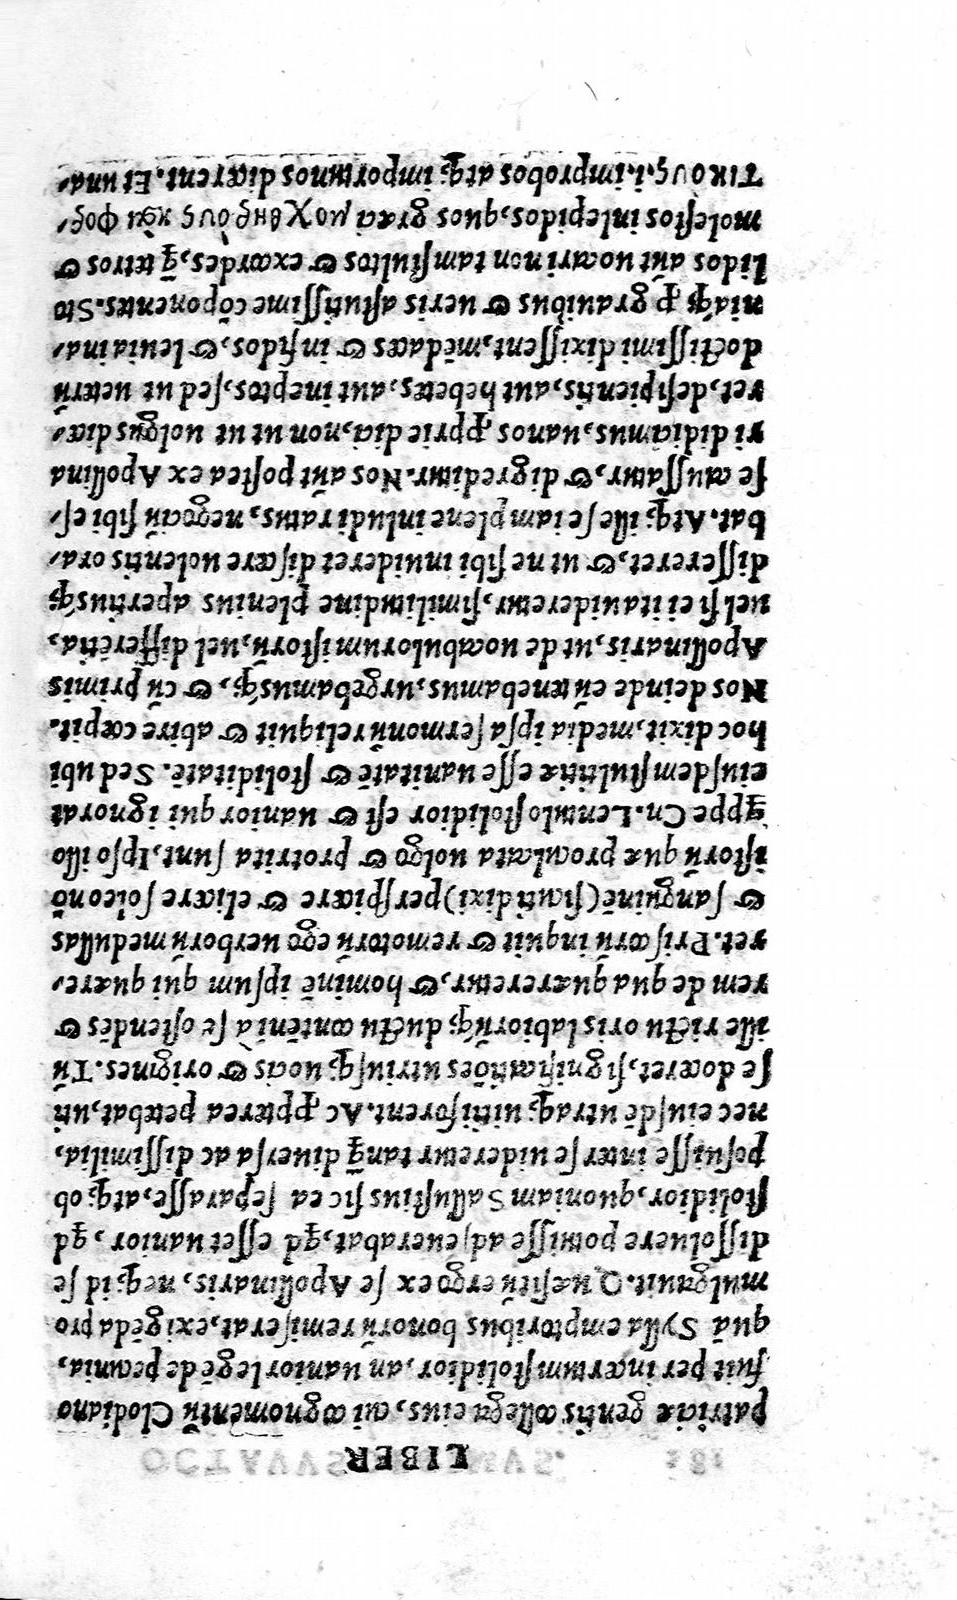 LIBER
patriciæ gentis collega eius, cui cognomētũ Clodiano
fuit per incertum stolidior, an uanior legē de pecunia,
quā Sylla emptoribus bonorũ remiserat, exigēda pro
mulgauit. Quæsitũ ergo ex se Apollinaris, neq; id se
dissoluere potuisse adseuerabat, qd esset uanior, qd
stolidior, quoniam Sallustius sic ea separasse, atq; ob
posuisse inter se uideretur tanq̃ diuersa ac dissimilia,
nec eiusdē utraq; uitii forent. Ac ꝓpterea petebat, uti
se doceret, significatiōes utriusq; uocis & origines. Tũ
ille rictu oris labiorũq; ductu contēni à se ostendēs &
rem de qua quæreretur, & hominē ipsum qui quære,
ret. Priscorũ inquit & remotorũ ego uerborũ medullas
& sanguinē (sicuti dixi) perspicere & elicere soleo nō
istorũ quæ proculcata uolgo & protrita sunt, Ipso illo
q̃ppe Cn. Lentulo stolidior est & uanior qui ignorat
eiusdem stultitiæ esse uanitatē & stoliditatē. Sed ubi
hoc dixit, media ipsa sermonũ reliquit & abire cœpit.
Nos deinde eũ tenebamus, urgebamusq;, & cũ primis
Apollinaris, ut de uocabulorum istorũ, uel differētia,
uel si ei ita uideretur, similitudine plenius apertiusq;
dissereret, & ut ne sibi inuideret discere uolentis ora,
bat. Atq; ille se iam plene inludi ratus, negociũ sibi es,
se caussatur, & digreditur. Nos aũt postea ex Apollina
ri didicimus, uanos ꝓprie dici, non ut ut uolgus dice,
ret, desipientis, aut hebetes, aut ineptos, sed ut ueterũ
doctissimi dixissent, mēdaces & infidos, & leuia ina,
niaq; ꝓ grauibus & ueris astutissime cōponentes. Sto
lidos aũt uocari non tam stultos & excordes, q̃ tetros &
molestos inlepidos, quos græci μοχθηροὺς καὶ φορ,
τικους .i. improbos atq; importunos dicerent. Et una,